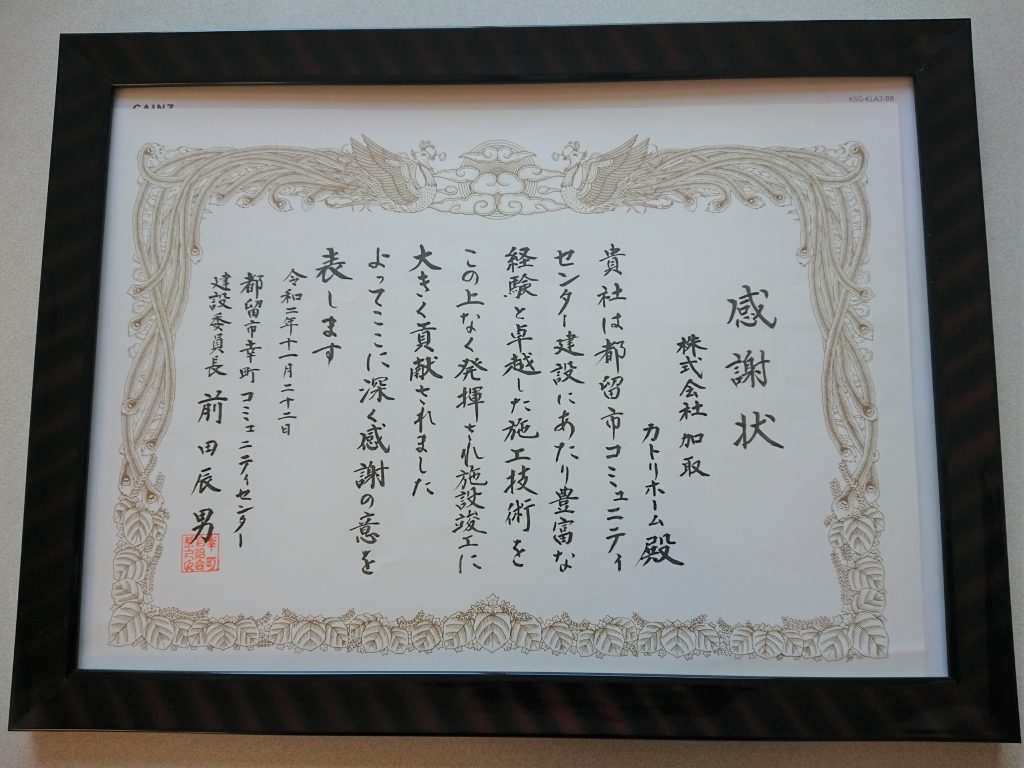 CAINZ
KSG-KLA3-BR
感謝状
株式会社加取
カトリホーム殿
貴社は都留市コミュニティ
センター建設にあたり豊富な
経験と卓越した施工技術を
この上なく発揮され施設竣工に
大きく貢献されました
よってここに深く感謝の意を
表します
令和二年十一月二十二日
都留市幸町コミュニティセンター
建設委員長 前田辰男